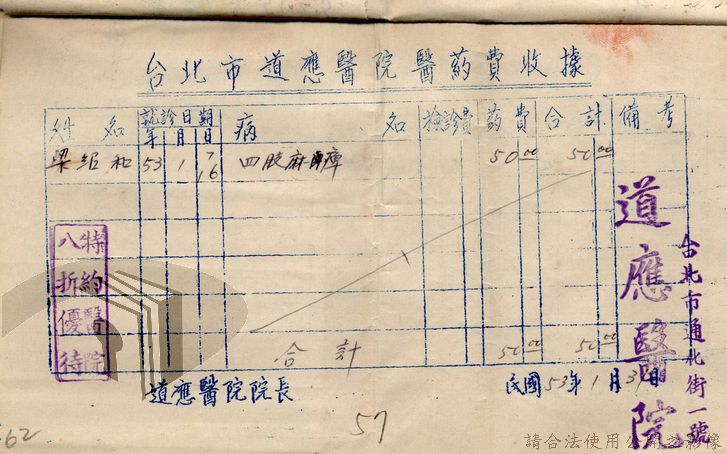 台北市道應醫院醫药費收據
姓名 就診日期 年月日 病名 檢診費 药費 合計 備考
梁紹和 53 1 7 四肢麻痺 50.00 50.00
16
合計 50.00 50.00
道應醫院院長
民國53年1月31日
特約醫院
八折優待
道應醫院
台北市通北街一號
57
62
請合法使用公開之影像